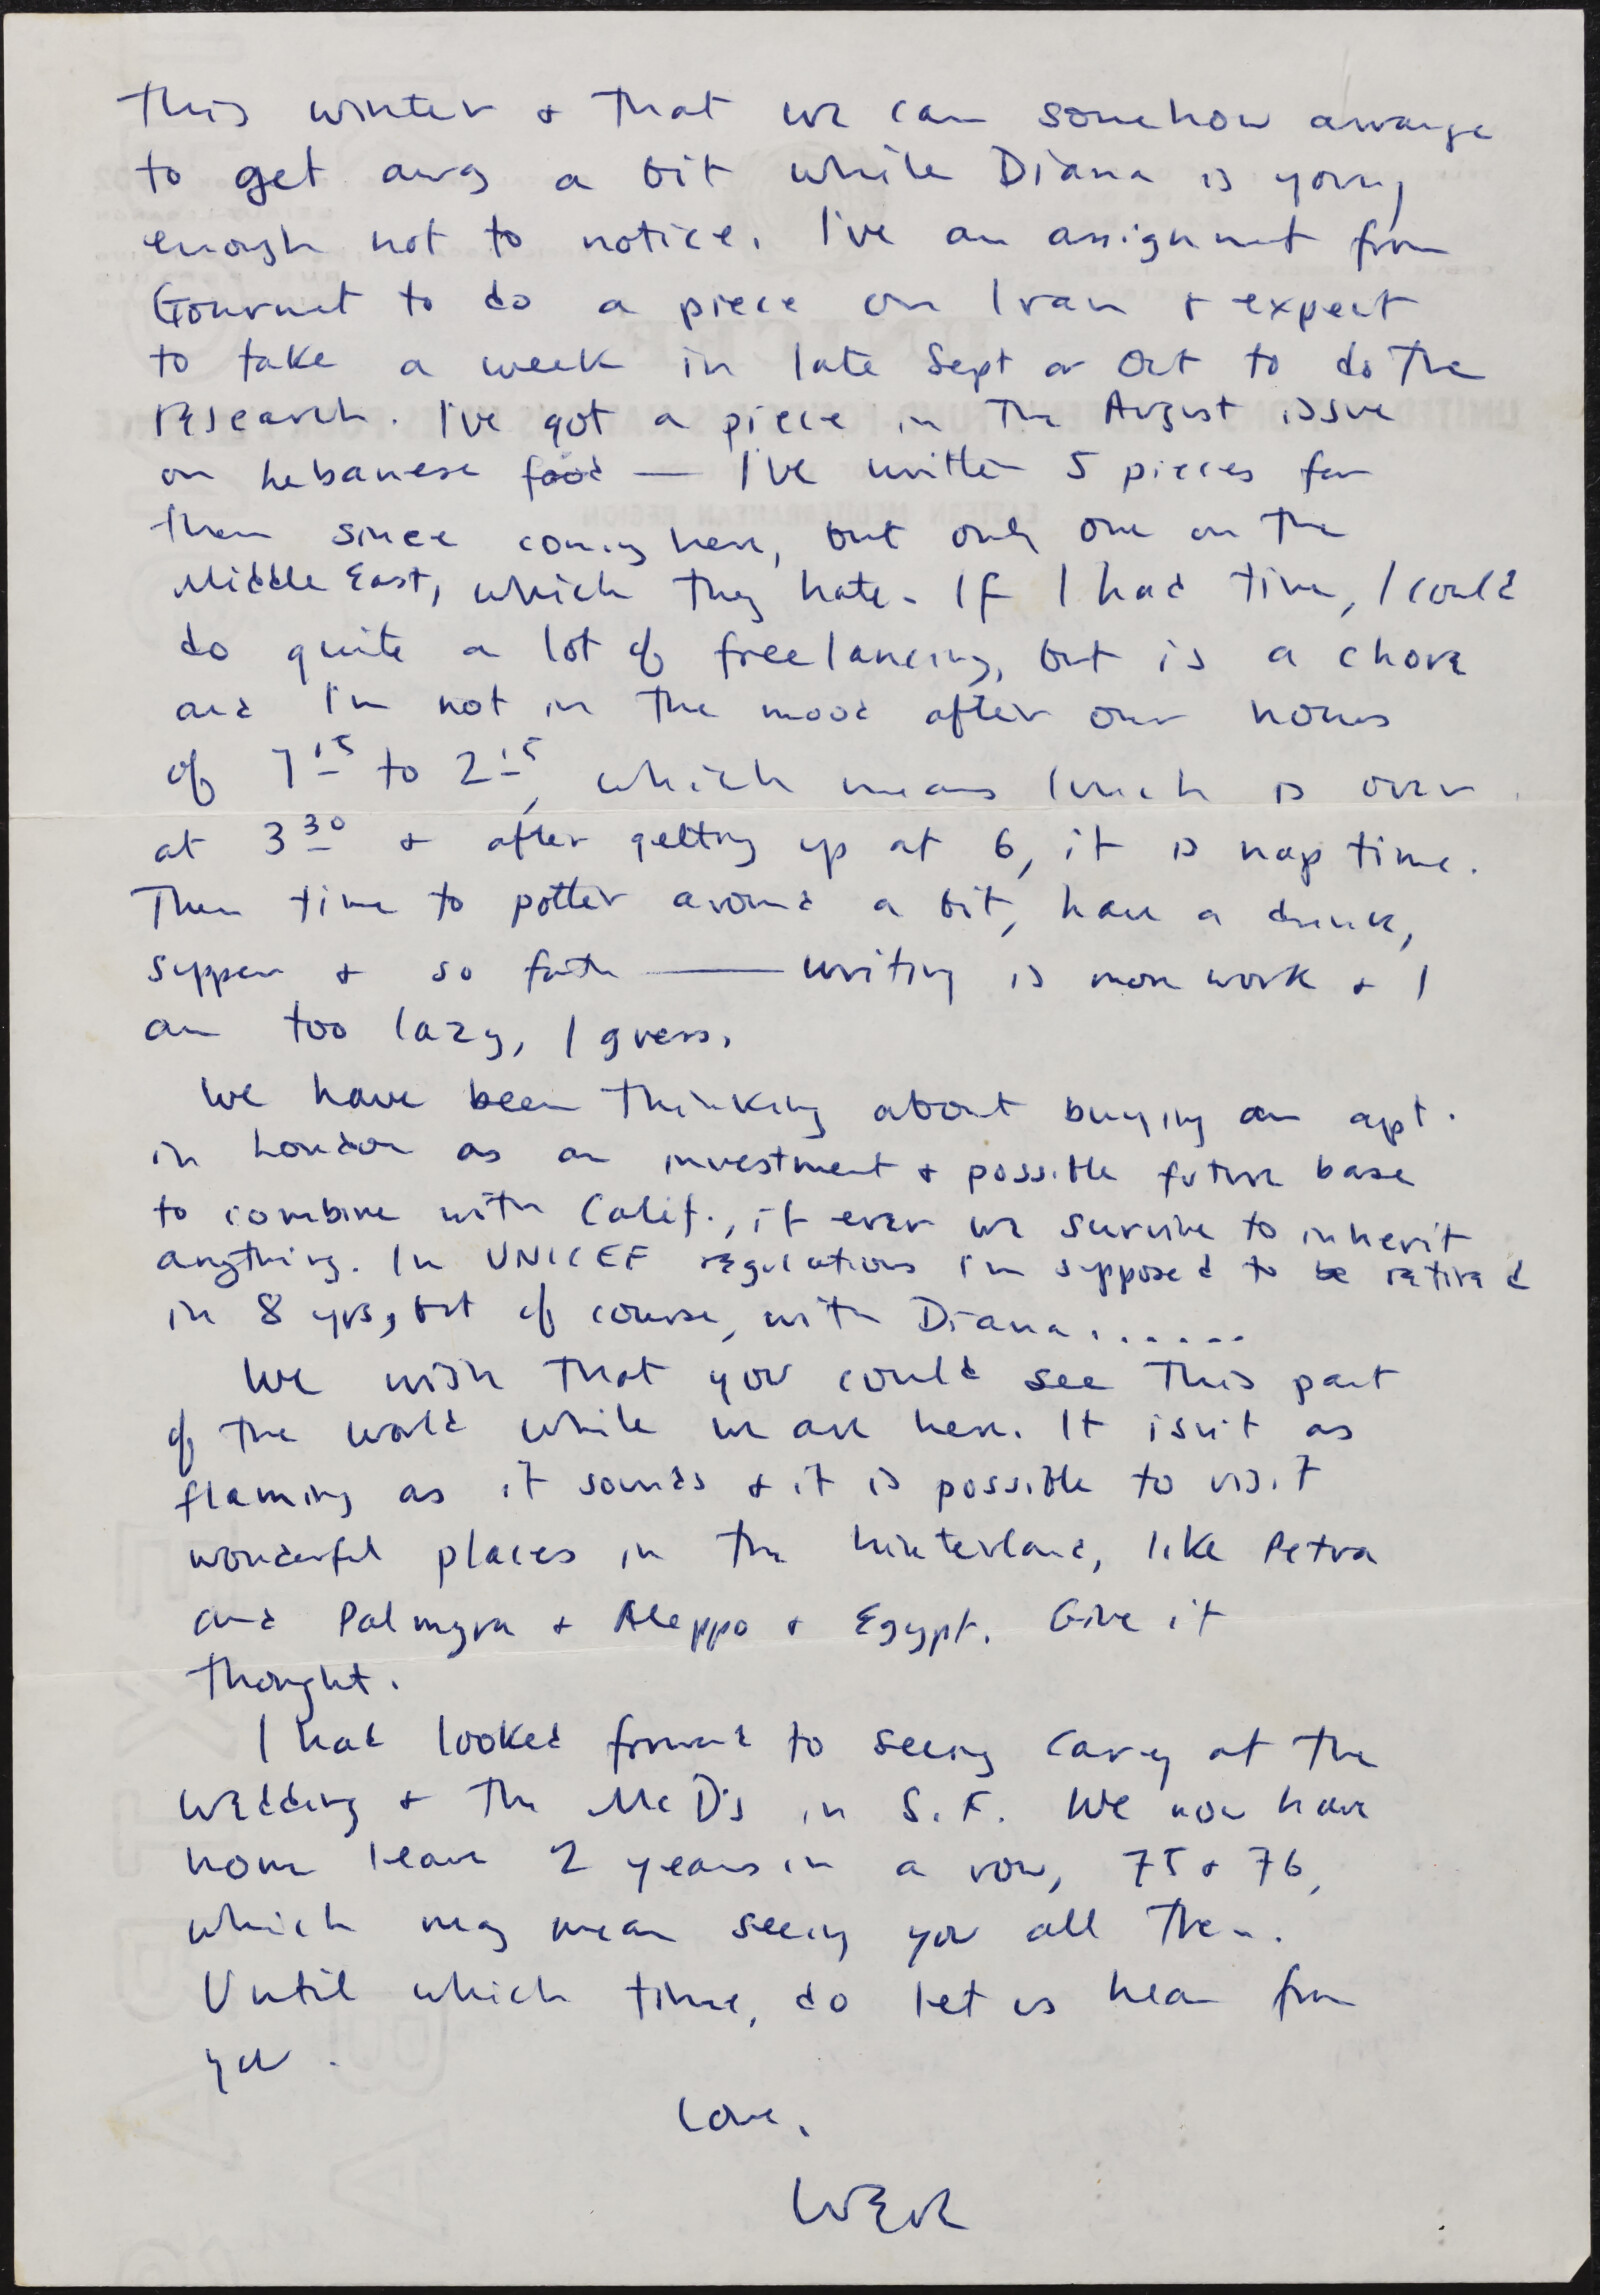 this winter & that we can somehow arrange
to get away a bit while Diana is young
enough not to notice. I've an assignment from
Gourmet to do a piece on Iran & expect
to take a week in late Sept or Oct to do the
research. I've got a piece in the August issue
on Lebanese food — I've written 5 pieces for
them since coming here, but only one on the
Middle East, which they hate. If I had time, I could
do quite a lot of freelancing, but is a chore
and I'm not in the mood after our hours
of 7 15 to 2 15, which means lunch is over
at 3 30 & after getting up at 6, it is nap time.
Then time to potter around a bit, have a drink,
supper & so forth — writing is more work & I
am too lazy, I guess.
We have been thinking about buying an apt.
in London as an investment & possible future base
to combine with Calif., if ever we survive to inherit
anything. In UNICEF regulations I'm supposed to be retired
in 8 yrs, but of course, with Diana.......
We wish that you could see this part
of the world while we are here. It isn't as
flaming as it sounds & it is possible to visit
wonderful places in the hinterland, like Petra
and Palmyra & Aleppo & Egypt. Give it
thought.
I had looked forward to seeing Carey at the
wedding & the McD's in S.F. We now have
home leave 2 years in a row, 75 & 76,
which may mean seeing you all then.
Until which time, do let us hear from
you.
Love,